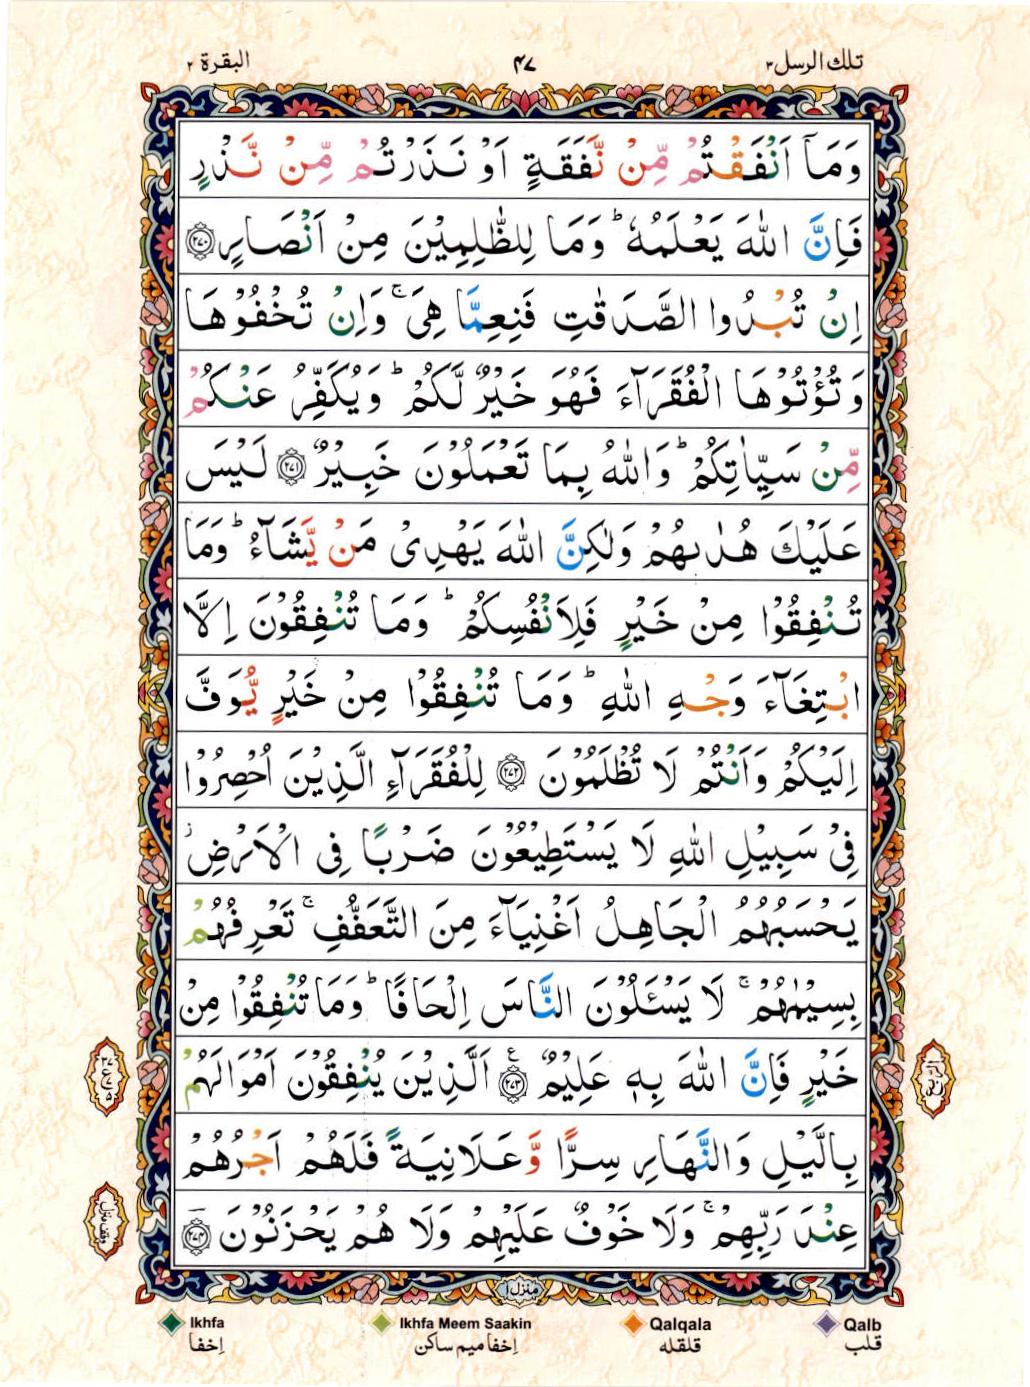 تلك الرسل ٣
٤٧
البقرة ٢
وَمَاۤ اَنْفَقْتُمْ مِّنْ نَّفَقَةٍ اَوْ نَذَرْتُمْ مِّنْ نَّذْرٍ
فَاِنَّ اللّٰهَ يَعْلَمُهٗ ؕ وَمَا لِلظّٰلِمِيْنَ مِنْ اَنْصَارٍ ﴿٢٧٠﴾
اِنْ تُبْدُوا الصَّدَقٰتِ فَنِعِمَّا هِىَ ۚ وَاِنْ تُخْفُوْهَا
وَتُؤْتُوْهَا الْفُقَرَآءَ فَهُوَ خَيْرٌ لَّكُمْ ؕ وَيُكَفِّرُ عَنْكُمْ
مِّنْ سَيِّاٰتِكُمْ ؕ وَاللّٰهُ بِمَا تَعْمَلُوْنَ خَبِيْرٌ ﴿٢٧١﴾ لَيْسَ
عَلَيْكَ هُدٰىهُمْ وَلٰكِنَّ اللّٰهَ يَهْدِىْ مَنْ يَّشَآءُ ؕ وَمَا
تُنْفِقُوْا مِنْ خَيْرٍ فَلِاَنْفُسِكُمْ ؕ وَمَا تُنْفِقُوْنَ اِلَّا
ابْتِغَآءَ وَجْهِ اللّٰهِ ؕ وَمَا تُنْفِقُوْا مِنْ خَيْرٍ يُّوَفَّ
اِلَيْكُمْ وَاَنْتُمْ لَا تُظْلَمُوْنَ ﴿٢٧٢﴾ لِلْفُقَرَآءِ الَّذِيْنَ اُحْصِرُوْا
فِىْ سَبِيْلِ اللّٰهِ لَا يَسْتَطِيْعُوْنَ ضَرْبًا فِى الْاَرْضِ ز
يَحْسَبُهُمُ الْجَاهِلُ اَغْنِيَآءَ مِنَ التَّعَفُّفِ ۚ تَعْرِفُهُمْ
بِسِيْمٰهُمْ ۚ لَا يَسْـَٔلُوْنَ النَّاسَ اِلْحَافًا ؕ وَمَا تُنْفِقُوْا مِنْ
خَيْرٍ فَاِنَّ اللّٰهَ بِهٖ عَلِيْمٌ ﴿٢٧٣﴾ ع اَلَّذِيْنَ يُنْفِقُوْنَ اَمْوَالَهُمْ
بِالَّيْلِ وَالنَّهَارِ سِرًّا وَّعَلَانِيَةً فَلَهُمْ اَجْرُهُمْ
عِنْدَ رَبِّهِمْ ۚ وَلَا خَوْفٌ عَلَيْهِمْ وَلَا هُمْ يَحْزَنُوْنَ ﴿٢٧٤﴾
الربع
وقف منزل
منزل ١
Ikhfa
Ikhfa Meem Saakin
Qalqala
Qalb
اِخفا
اِخفا میم ساکن
قلقله
قلب